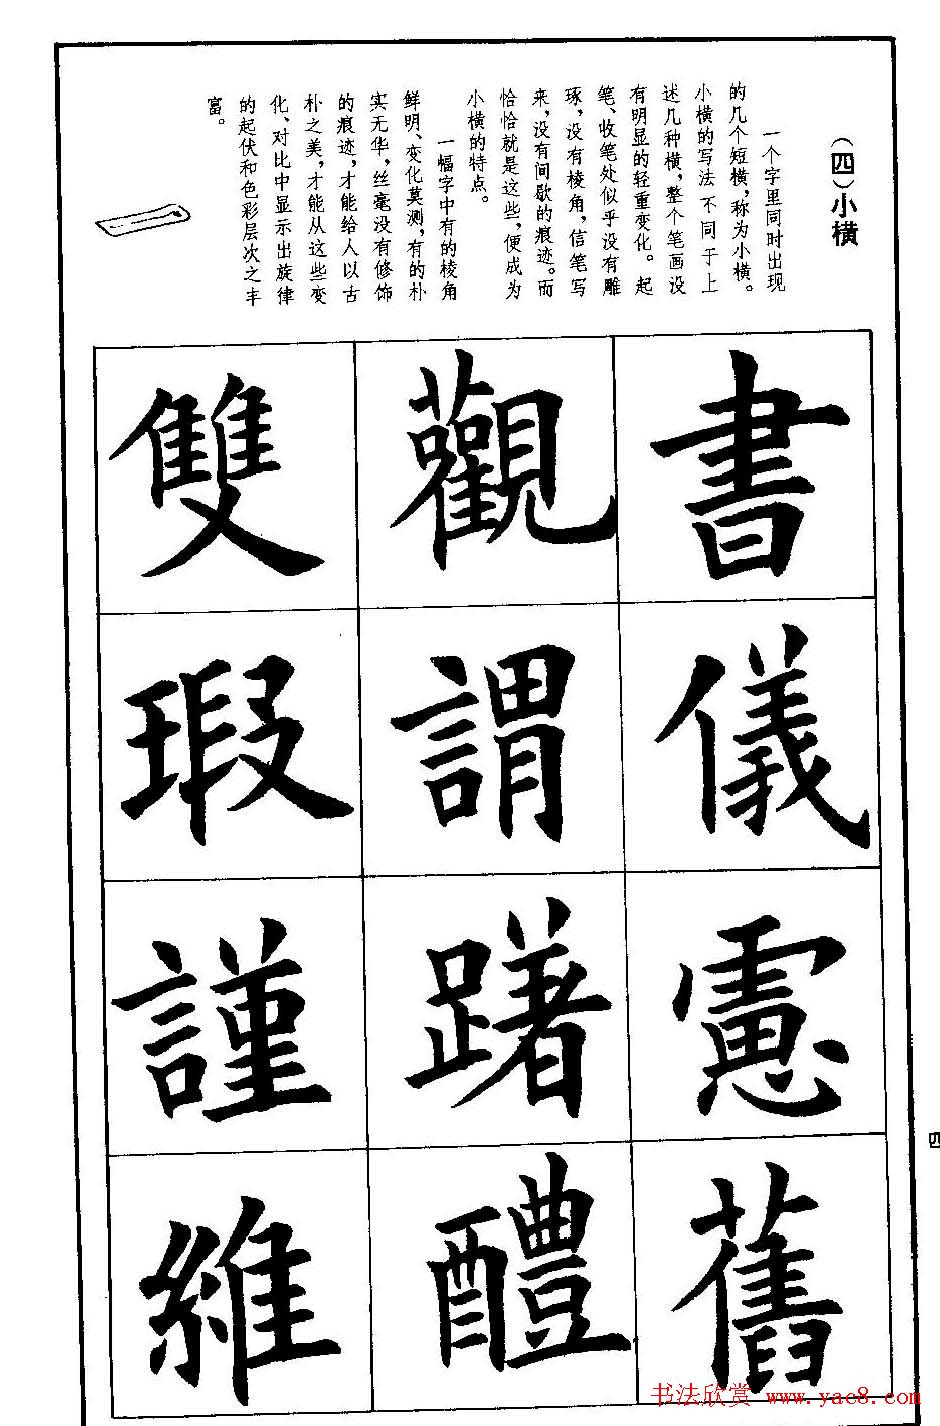 (四)小横
一个字里同时出现
的几个短横，称为小横。
小横的写法不同于上
述几种横，整个笔画没
有明显的轻重变化。起
笔、收笔处似乎没有雕
琢，没有棱角，信笔写
来，没有间歇的痕迹。而
恰恰就是这些，便成为
小横的特点。
一幅字中有的棱角
鲜明、变化莫测，有的朴
实无华，丝毫没有修饰
的痕迹，才能给人以古
朴之美，才能从这些变
化、对比中显示出旋律
的起伏和色彩层次之丰
富。
書儀慮舊
觀謂躇醴
雙瑕謹維
四
书法欣赏 www.yac8.com